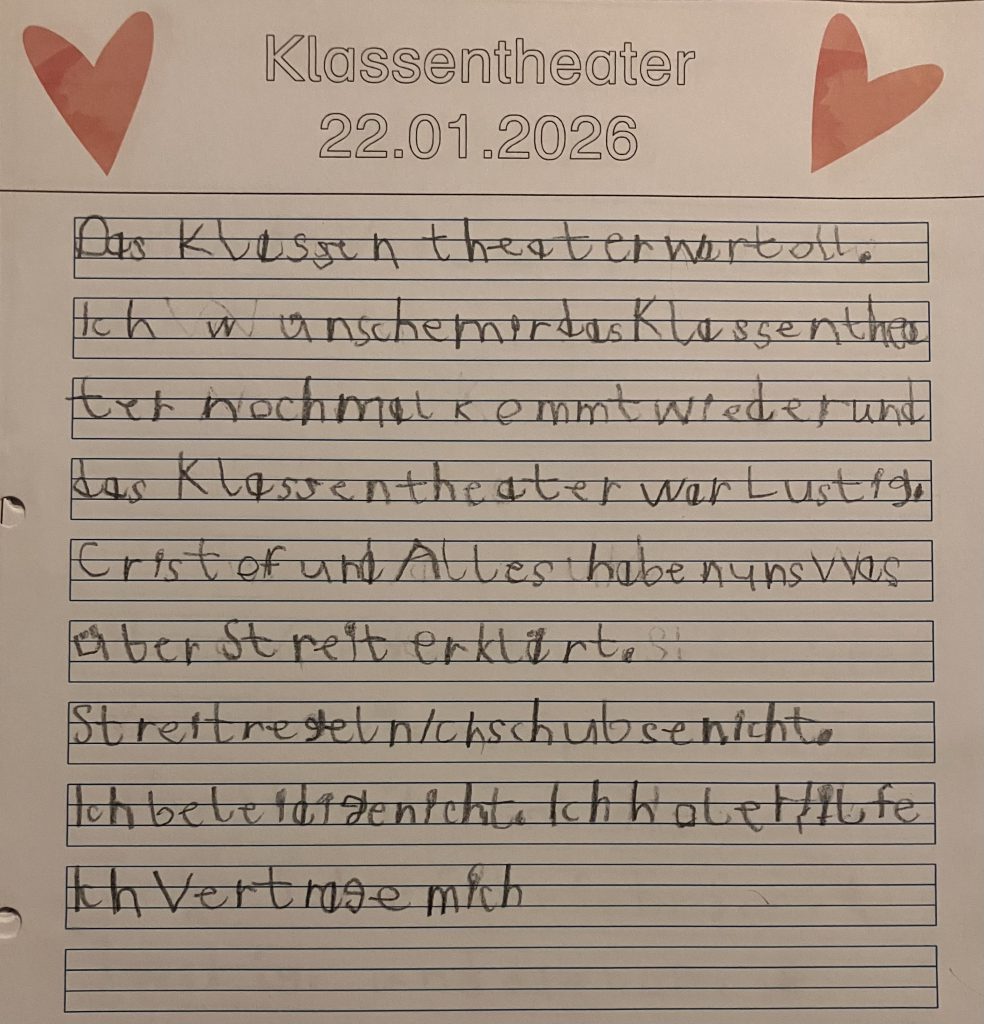 Klassentheater
22.01.2026
Das Klassen theater war toll.
Ich wünsche mir das Klassenthea
ter nochmal kommt wieder und
das Klassentheater war Lustig.
Cristof und Alles haben uns Was
über Streit erklärt.
Streitregeln Ich schubse nicht.
Ich beleidige nicht. Ich hole Hilfe
Ich Vertrage mich